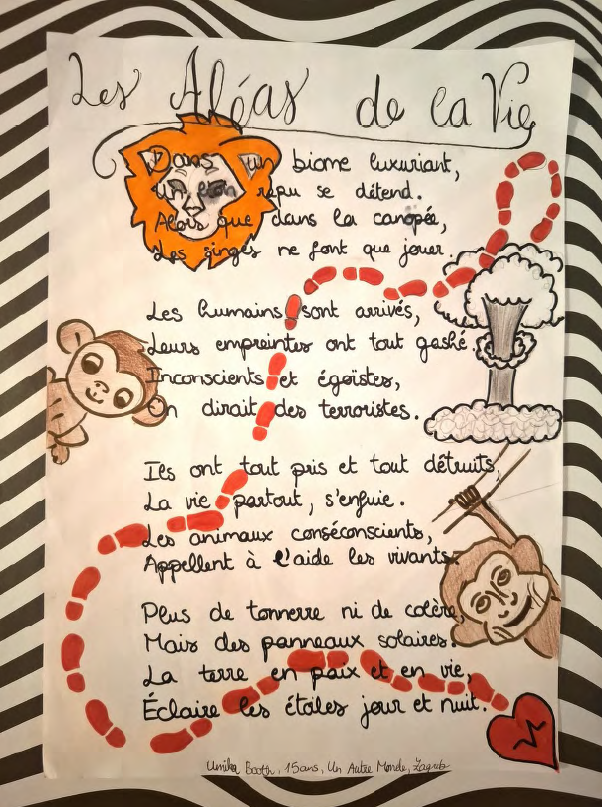 Les Aléas de la Vie
Dans un biome luxuriant,
un lion repu se détend.
Alors que dans la canopée,
Les singes ne font que jouer.
Les humains sont arrivés,
Leurs empreintes ont tout gaché.
Inconscients et égoïstes,
On dirait des terroristes.
Ils ont tout pris et tout détruits,
La vie partout, s'enfuie.
Les animaux conséconscients,
Appellent à l'aide les vivants.
Plus de tonnerre ni de colère,
Mais des panneaux solaires.
La terre en paix et en vie,
Éclaire les étoles jour et nuit.
Booth, 15ans, Un Autre Monde, Zagreb